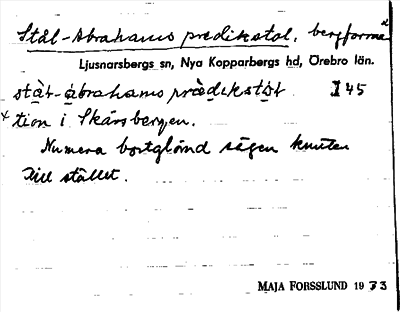 Stål-Abrahams predikstol, bergforma-
Ljusnarsbergs sn, Nya Kopparbergs hd, Örebro län.
stå̀l-ábrahams prǽdikstòl I 45
× tion i Skärsbergen.
Numera bortglömd sägen knuten
till stället.
MAJA FORSSLUND 1973